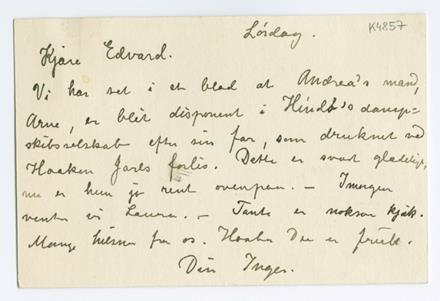 Lördag.
K4857
Kjäre Edvard.
Vi har set i et blad at Andrea's mand,
Arne, er blit disponent i Hindö's damp-
skibsselskab efter sin far, som druknet ved
Haakon Jarls forlis. Dette er svært gladeligt,
nu er hun jo rent ovenpaa. — Imorgen
venter vi Laura. — Tante er noksaa kjæk.
Mange hilsner fra os. Haaber Du er frisk.
Din Inga.